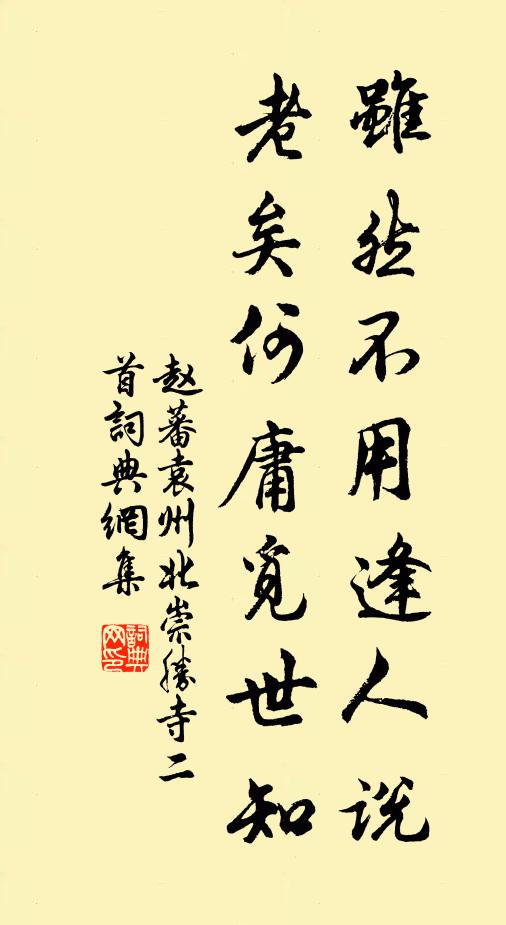 雖然不用逢人說
老矣何庸覓世知
赵蕃袁州北崇勝寺二
首詞典網集
詞典
网印